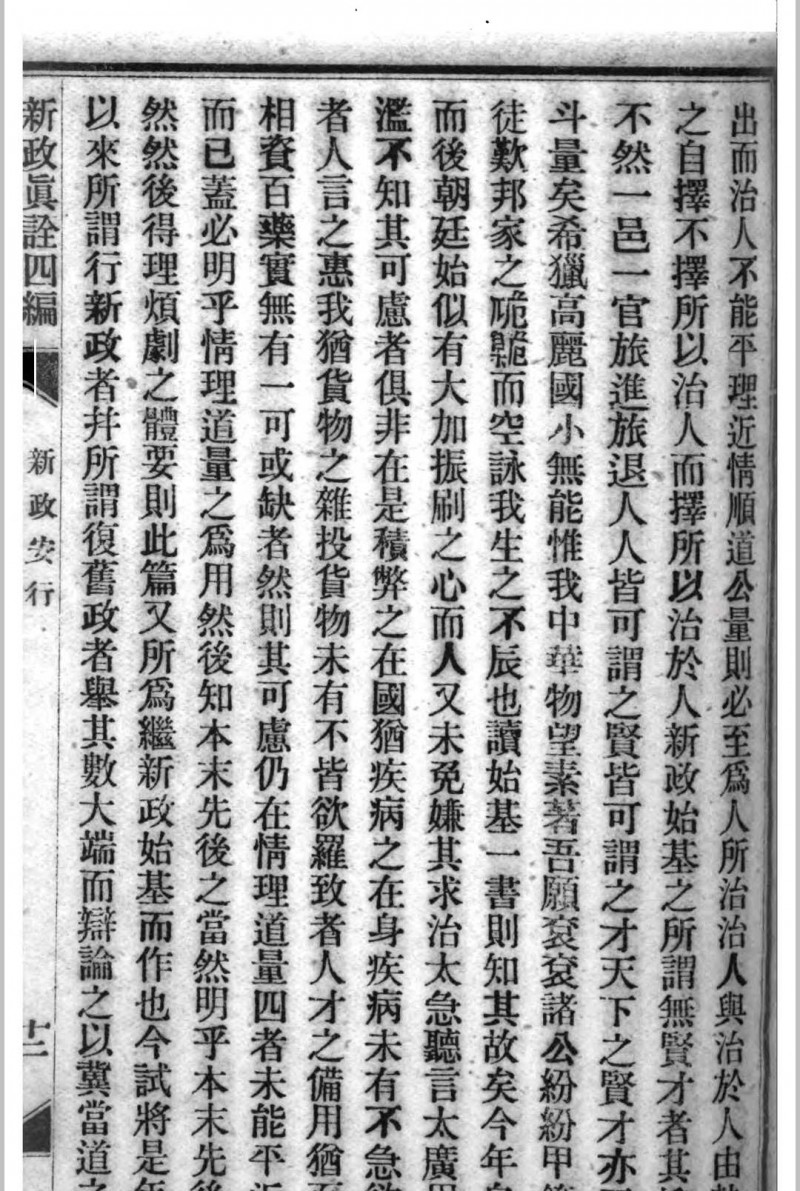 出而治人不能平理近情順道公量則必至爲人所治治人與治於人由
之自擇不擇所以治人而擇所以治於人新政始基之所謂無賢才者其
不然一邑一官旅進旅退人人皆可謂之賢皆可謂之才天下之賢才亦
斗量矣希獵高麗國小無能惟我中華物望素著吾願袞袞諸公紛紛甲
徒歎邦家之阢隉而空詠我生之不辰也讀始基一書則知其故矣今年
而後朝廷始似有大加振刷之心而人又未免嫌其求治太急聽言太廣
濫不知其可慮者俱非在是積弊之在國猶疾病之在身疾病未有不急
者人言之惠我猶貨物之雜投貨物未有不皆欲羅致者人才之備用猶
相資百藥實無有一可或缺者然則其可慮仍在情理道量四者未能平近
而已蓋必明乎情理道量之爲用然後知本末先後之當然明乎本末先後
然然後得理煩劇之體要則此篇又所爲繼新政始基而作也今試將是年
以來所謂行新政者幷所謂復舊政者舉其數大端而辯論之以冀當道之
新政眞詮四編
新政安行
十二